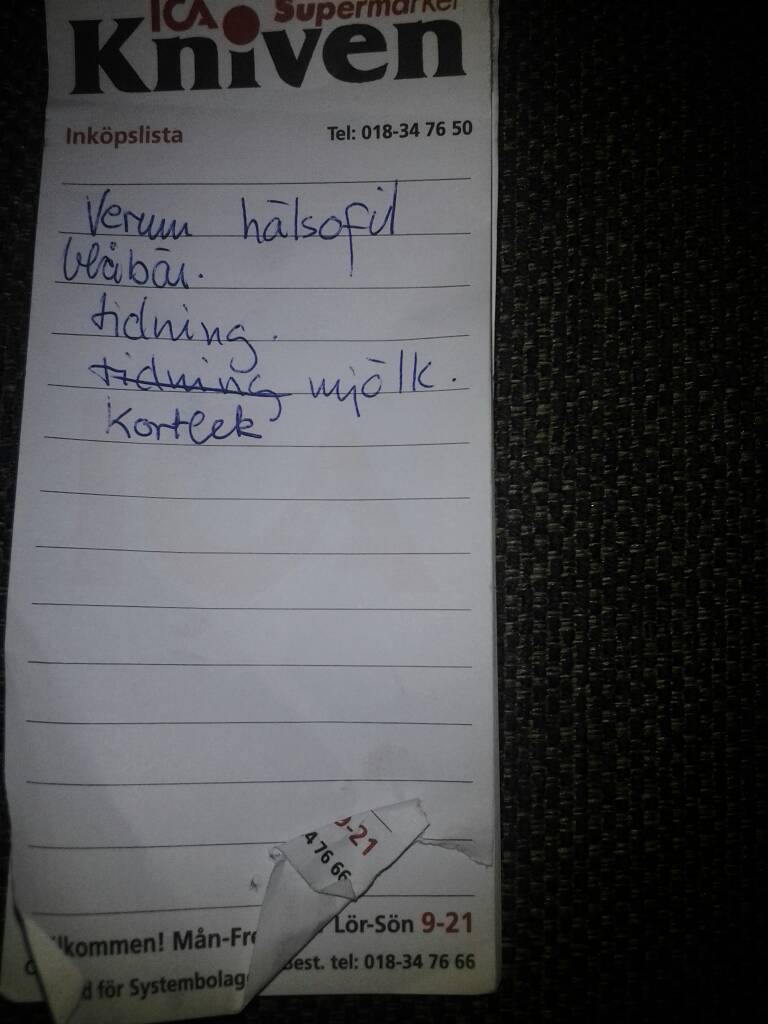 ICA Supermarket
Kniven
Inköpslista Tel: 018-34 76 50
Verum hälsofil
blåbär.
tidning.
tidning mjölk.
Kortlek
9-21
4 76 66
lkommen! Mån-Fre Lör-Sön 9-21
d för Systembolag Best. tel: 018-34 76 66